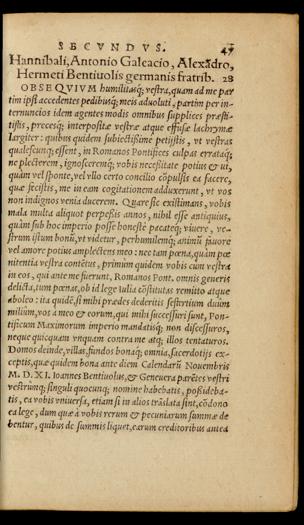 SECVNDVS. 47
Hannibali, Antonio Galeacio, Alexãdro,
Hermeti Bentiuolis germanis fratrib. 28
OBSEQVIVM humilitasq; vestra, quam ad me par
tim ipsi accedentes pedibusq; meis aduoluti, partim per in-
ternuncios idem agentes modis omnibus supplices præsti-
tistis, precesq; interpositæ vestræ atque effusæ lachrymæ
largiter: quibus quidem subiectißimè petijstis, vt vestras
qualescunq; essent, in Romanos Pontifices culpas errataq;
ne plecterem, ignosceremq; vobis necessitate potius & ui,
quàm vel sponte, vel vllo certo concilio cõpulsis ea facere,
quæ fecistis, me in eam cogitationem adduxerunt, vt vos
non indignos venia ducerem. Quare sic existimans, vobis
mala multa aliquot perpeßis annos, nihil esse antiquius,
quàm sub hoc imperio posse honestè pacateq; viuere, ve-
strum istum bonũ, vt videtur, perhumilemq; animũ fauore
vel amore potius amplectens meo: nec tam pœna, quàm pœ
nitentia vestra contẽtus, primùm quidem vobis cũm vestra
in eos, qui ante me fuerunt, Romanos Pont. omnis generis
delicta, tum pœnas, ob id lege Iulia cõstitutas remitto atque
aboleo: ita quidẽ, si mihi prædes dederitis sestertium duûm
milium, vos a meo & eorum, qui mihi successuri sunt, Pon-
tificum Maximorum imperio mandatisq; non discessuros,
neque quicquam vnquam contra me atq; illos tentaturos.
Domos deinde, villas, fundos bonaq; omnia, sacerdotijs ex-
ceptis, quæ quidem bona ante diem Calendarũ Nouembris
M. D. XI. Ioannes Bentiuolus, & Geneuera parẽtes vestri
vestrũmq; singuli quocunq; nomine habebatis, poßideba-
tis, ea vobis vniuersa, etiam si in alios trãslata sint, cõdono
ea lege, dum quæ à vobis rerum & pecuniarum summæ de
bentur, quibus de summis liquet, earum creditoribus antea